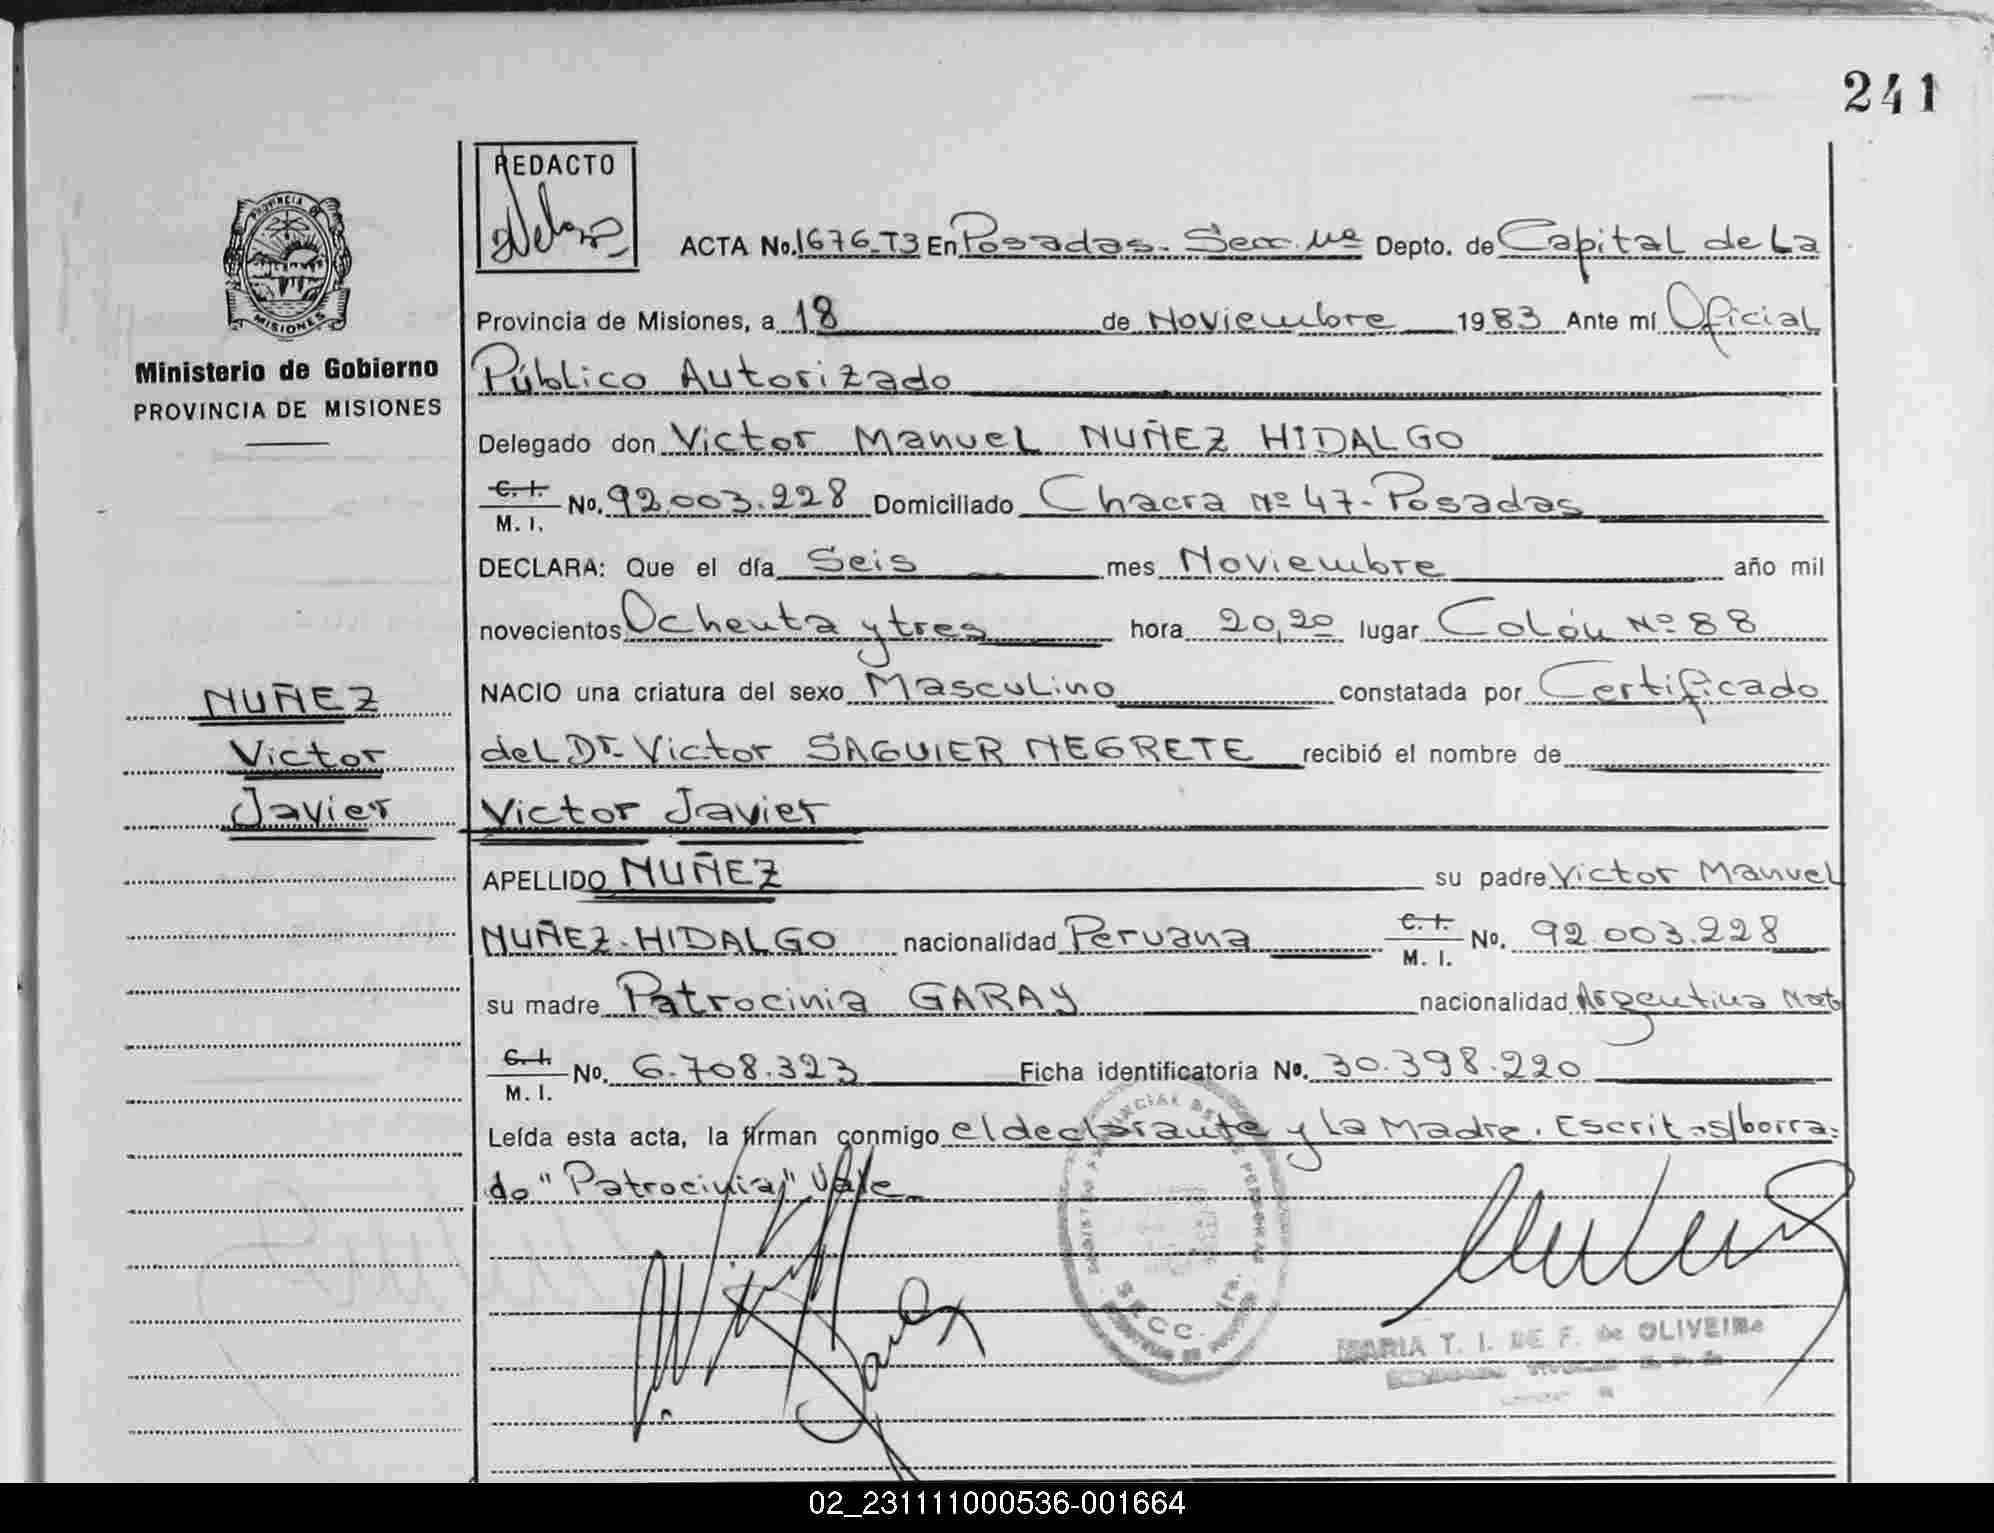 241
REDACTO
PROVINCIA DE
MISIONES
ACTA No. 1676-T3 En Posadas- Secc. 1ª Depto. de Capital de La
Provincia de Misiones, a 18 de Noviembre 1983 Ante mí Oficial
Ministerio de Gobierno
PROVINCIA DE MISIONES
Público Autorizado
Delegado don Victor Manuel NUÑEZ HIDALGO
C. I. M. I. No. 92.003.228 Domiciliado Chacra Nº 47-Posadas
DECLARA: Que el día Seis mes Noviembre año mil
novecientos Ochenta y tres hora 20,20 lugar Colón Nº 88
NUÑEZ
NACIO una criatura del sexo Masculino constatada por Certificado
Victor
del Dr. Victor SAGUIER NEGRETE recibió el nombre de
Javier
Victor Javier
APELLIDO NUÑEZ su padre Victor Manuel
NUÑEZ-HIDALGO nacionalidad Peruana C. I. M. I. No. 92.003.228
su madre Patrocinia GARAY nacionalidad Argentina Nat
C. I. M. I. No. 6.708.323 Ficha identificatoria No. 30.398.220
Leída esta acta, la firman conmigo el declarante y La Madre. Escrito s/borra-
do "Patrocinia" Vale
SECC. 1ra.
MARIA T. I. DE F. de OLIVEIRA
02_231111000536-001664